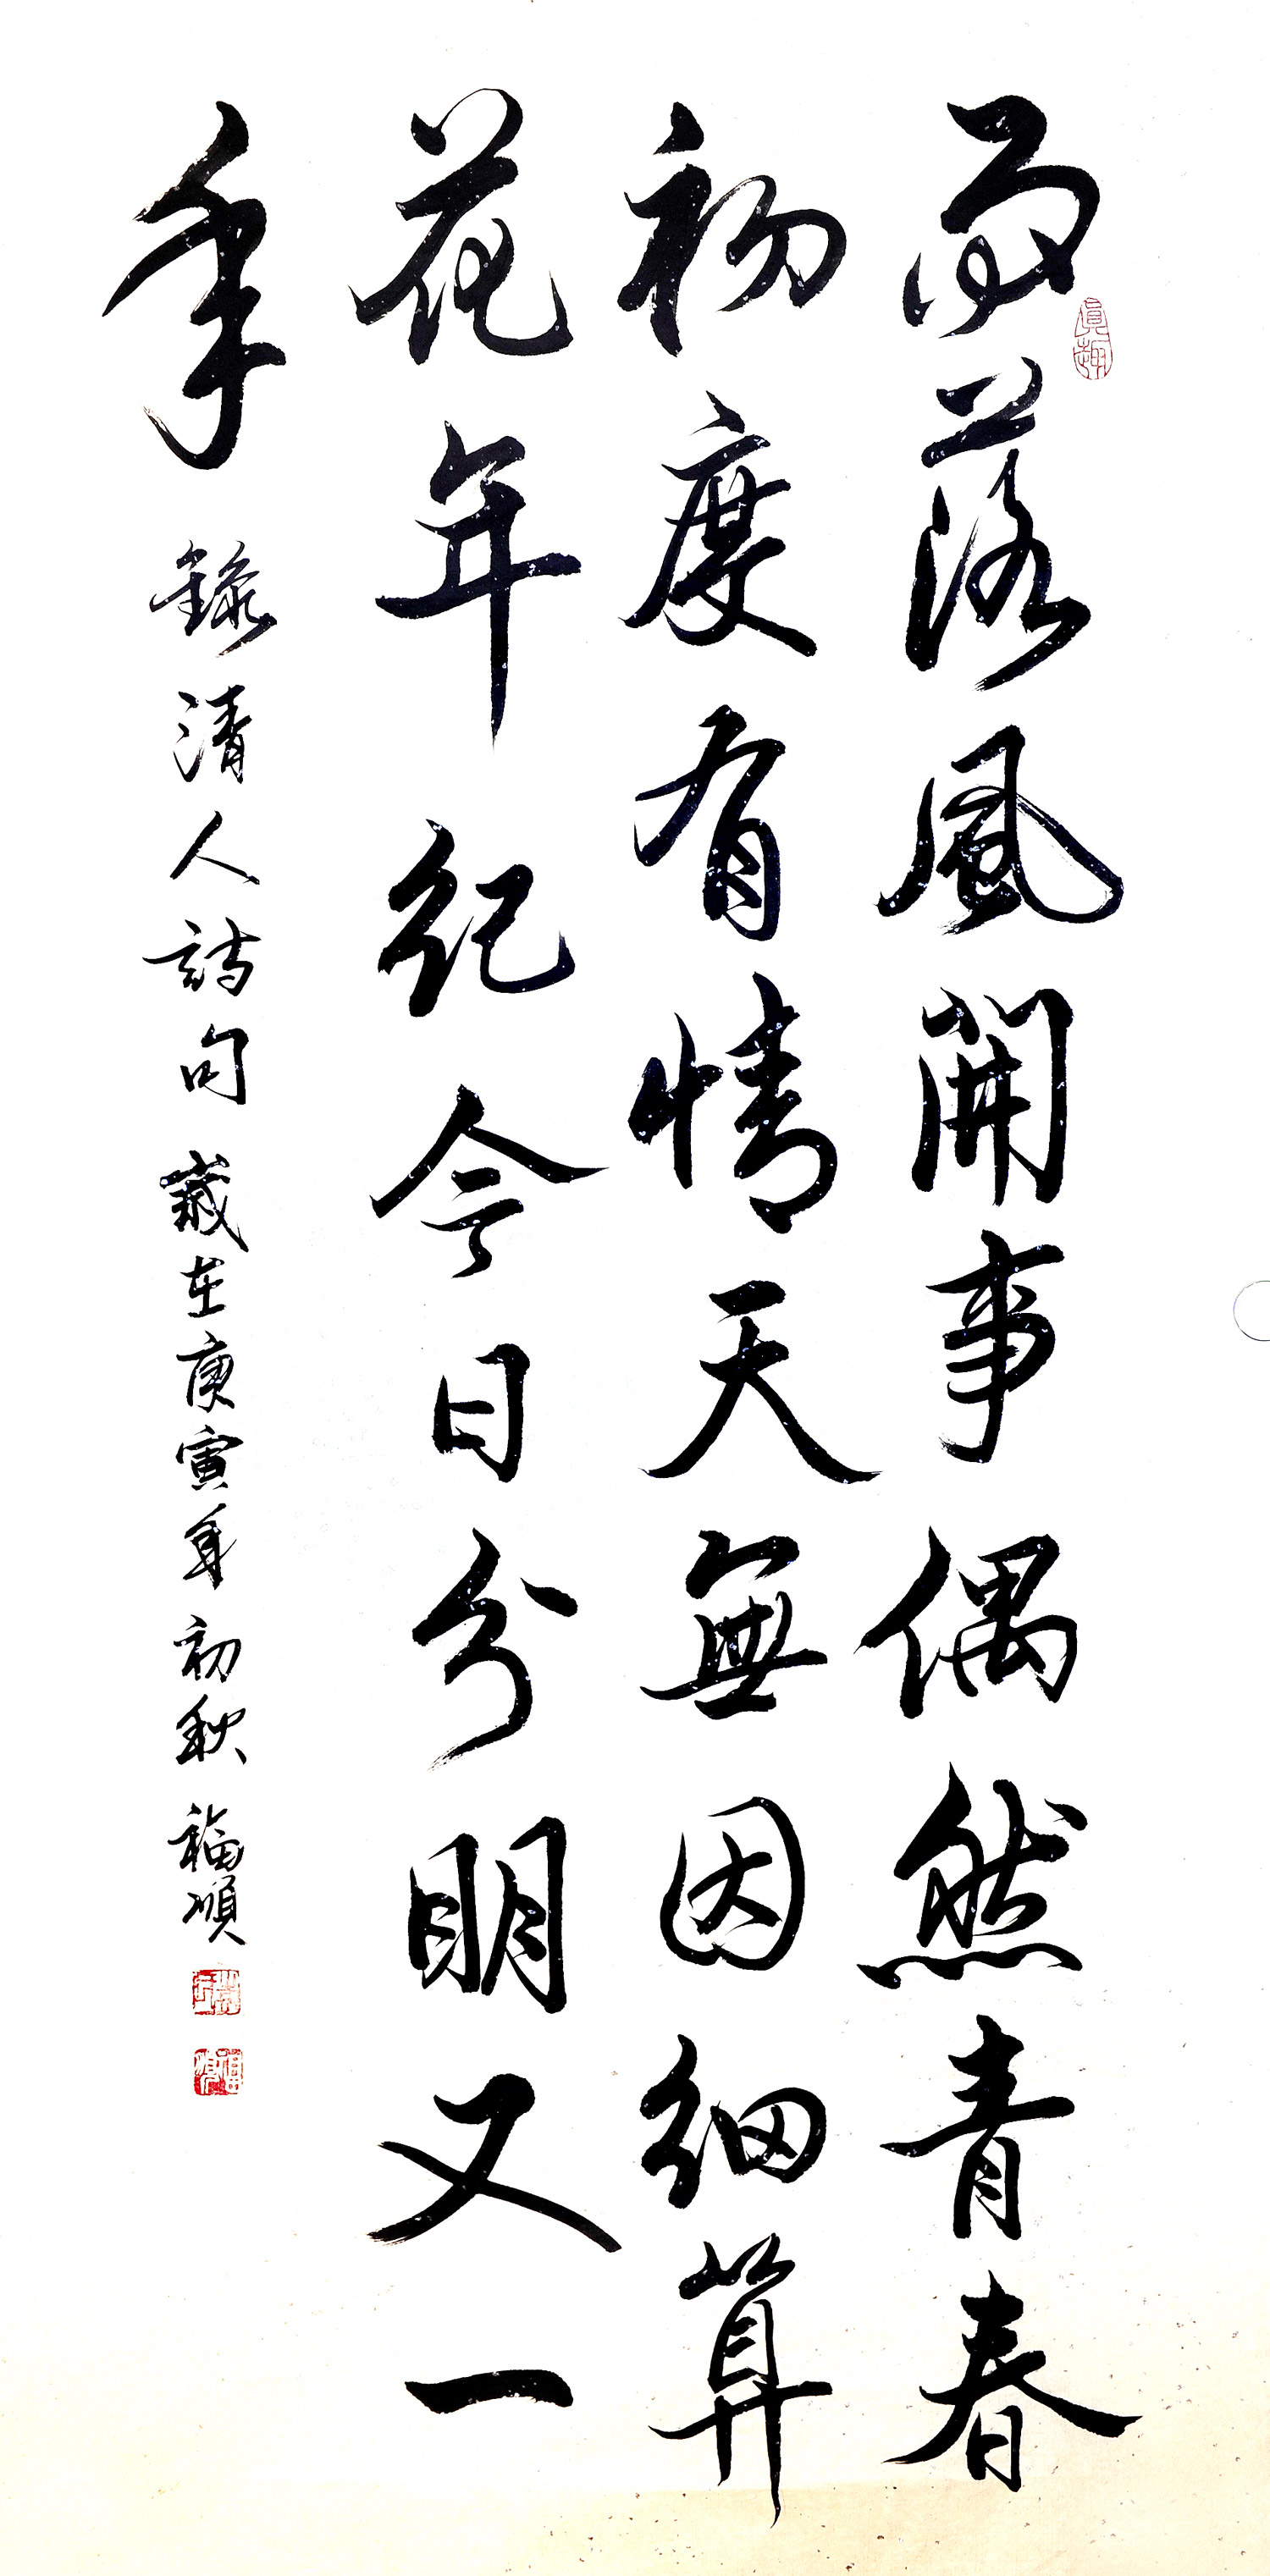 雨落風開事偶然青春
初度有情天無因細算
花年紀今日分明又一
年 錄清人詩句 歲在庚寅年初秋 福順
真趣